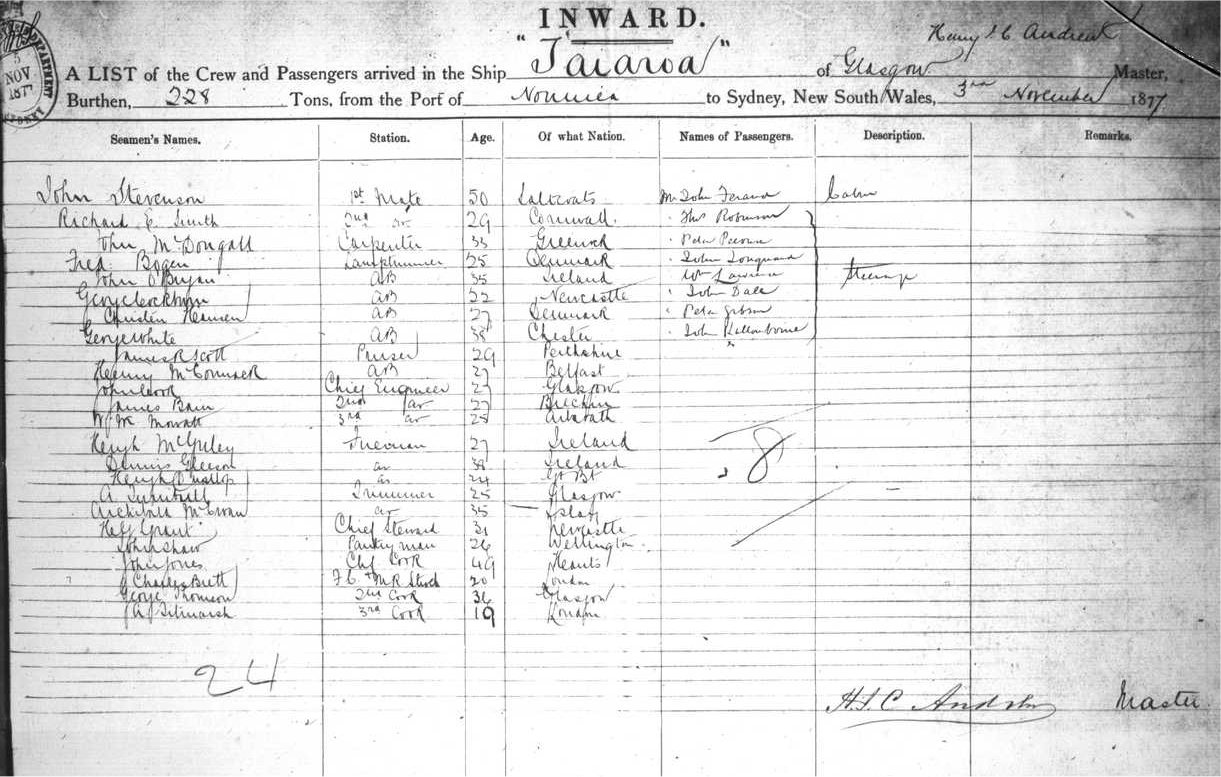 INWARD.
NOV
1877
Henry S C Andrew
A LIST of the Crew and Passengers arrived in the Ship "Taiaroa" of Glasgow Master,
Burthen, 228 Tons, from the Port of Noumea to Sydney, New South Wales, 3rd November 1877
Seamen's Names. Station. Age. Of what Nation. Names of Passengers. Description. Remarks.
John Stevenson 1st Mate 50 Saltcoats Mr John Cabin
Richard C Smith 2nd do 29 Cornwall Thos Robinson
John McDougall Carpenter 33 Greenock Peter
Fred Lamptrimmer 25 Denmark John
John O'Bryan AB 35 Ireland Wm Lawrence Steerage
George AB 22 Newcastle John Dale
Christen Hansen AB 27 Denmark Peter Gibson
George White AB 38 Chester John
James R Scott Purser 29 Perthshire
Henry McCormack AB 27 Belfast
John Cook Chief Engineer 27 Glasgow
James Bain 2nd do 27 Brechin
W Mc 3rd do 28 Arbroath
Hugh Fireman 27 Ireland
Dennis Gleeson do Ireland
Hugh Dunlop do 24
A Trimmer 25 Glasgow
Archibald McEwan do 35 Islay
Grant Chief Steward 31 Newcastle
John Shaw Pantry man 26 Wellington
John Jones Chf Cook 49 Hants
Charles Brett 20 London
George Thomson 2nd Cook 36 Glasgow
3rd Cook 19 London
8
24
H.S.C Andrew Master